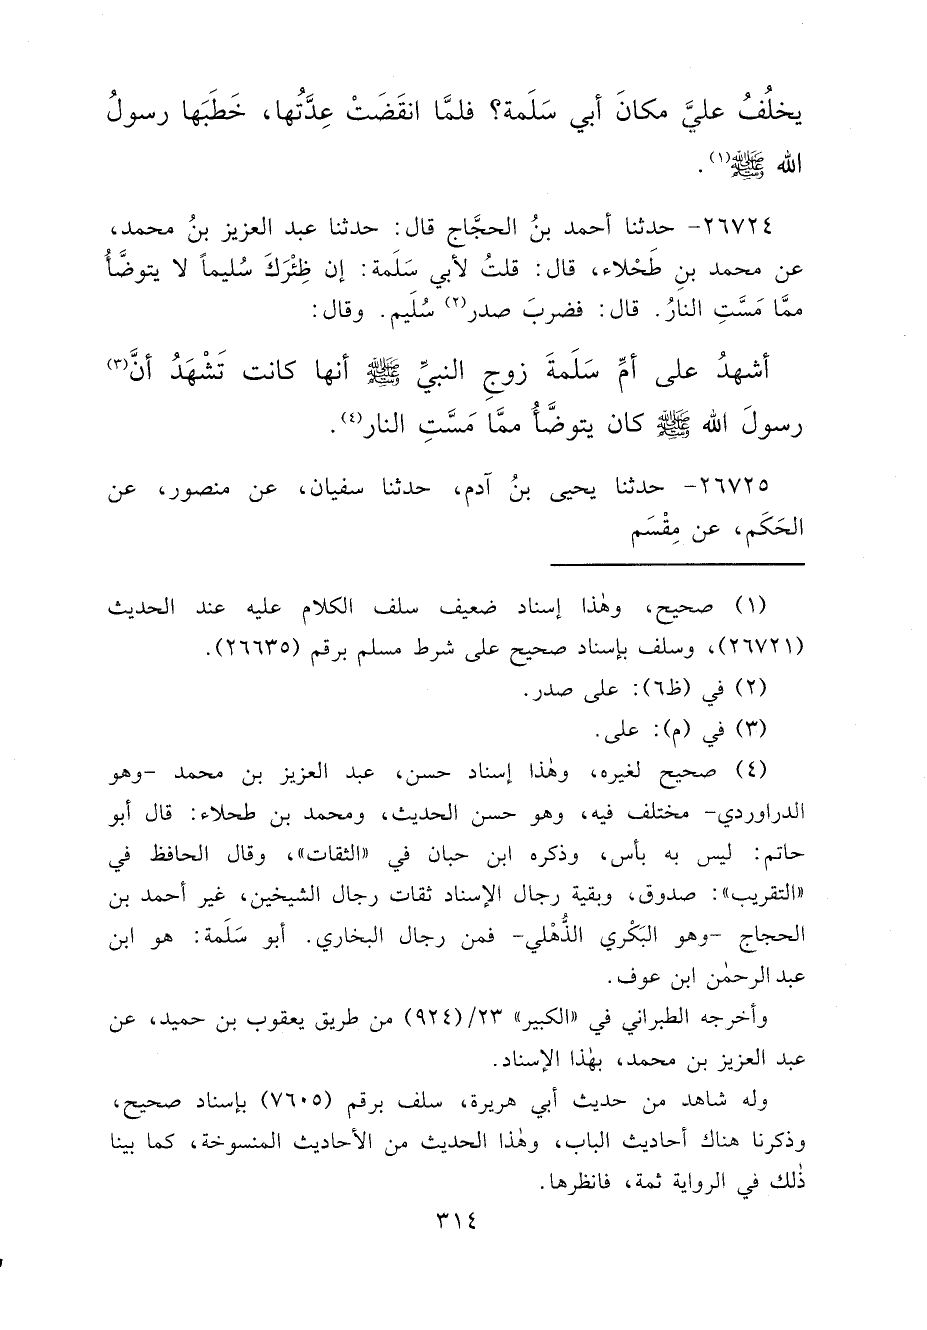 يخلُفُ عليَّ مكانَ أبي سَلَمة؟ فلمَّا انقَضَتْ عِدَّتُها، خَطَبَها رسولُ
الله ﷺ(١).
٢٦٧٢٤- حدثنا أحمد بنُ الحجَّاج قال: حدثنا عبد العزيز بنُ محمد،
عن محمد بنِ طَحْلاء، قال: قلتُ لأبي سَلَمة: إن ظِئْرَكَ سُليماً لا يتوضَّأُ
ممَّا مَسَّتِ النارُ. قال: فضربَ صدر(٢) سُلَيم. وقال:
أشهدُ على أمِّ سَلَمةَ زوجِ النبيِّ ﷺ أنها كانت تَشْهَدُ أنَّ(٣)
رسولَ الله ﷺ كان يتوضَّأُ ممَّا مَسَّتِ النار(٤).
٢٦٧٢٥- حدثنا يحيى بنُ آدم، حدثنا سفيان، عن منصور، عن
الحَكَم، عن مِقْسَم
(١) صحيح، وهٰذا إسناد ضعيف سلف الكلام عليه عند الحديث
(٢٦٧٢١)، وسلف بإسناد صحيح على شرط مسلم برقم (٢٦٦٣٥).
(٢) في (ظ٦): على صدر.
(٣) في (م): على.
(٤) صحيح لغيره، وهٰذا إسناد حسن، عبد العزيز بن محمد -وهو
الدراوردي- مختلف فيه، وهو حسن الحديث، ومحمد بن طحلاء: قال أبو
حاتم: ليس به بأس، وذكره ابن حبان في «الثقات»، وقال الحافظ في
«التقريب»: صدوق، وبقية رجال الإسناد ثقات رجال الشيخين، غير أحمد بن
الحجاج -وهو البَكْري الذُّهْلي- فمن رجال البخاري. أبو سَلَمة: هو ابن
عبد الرحمٰن ابن عوف.
وأخرجه الطبراني في «الكبير» ٢٣/(٩٢٤) من طريق يعقوب بن حميد، عن
عبد العزيز بن محمد، بهٰذا الإسناد.
وله شاهد من حديث أبي هريرة، سلف برقم (٧٦٠٥) بإسناد صحيح،
وذكرنا هناك أحاديث الباب، وهٰذا الحديث من الأحاديث المنسوخة، كما بينا
ذٰلك في الرواية ثمة، فانظرها.
٣١٤